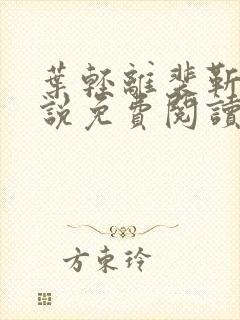 葉輕離裴靳
說免費閱讀
方東玲